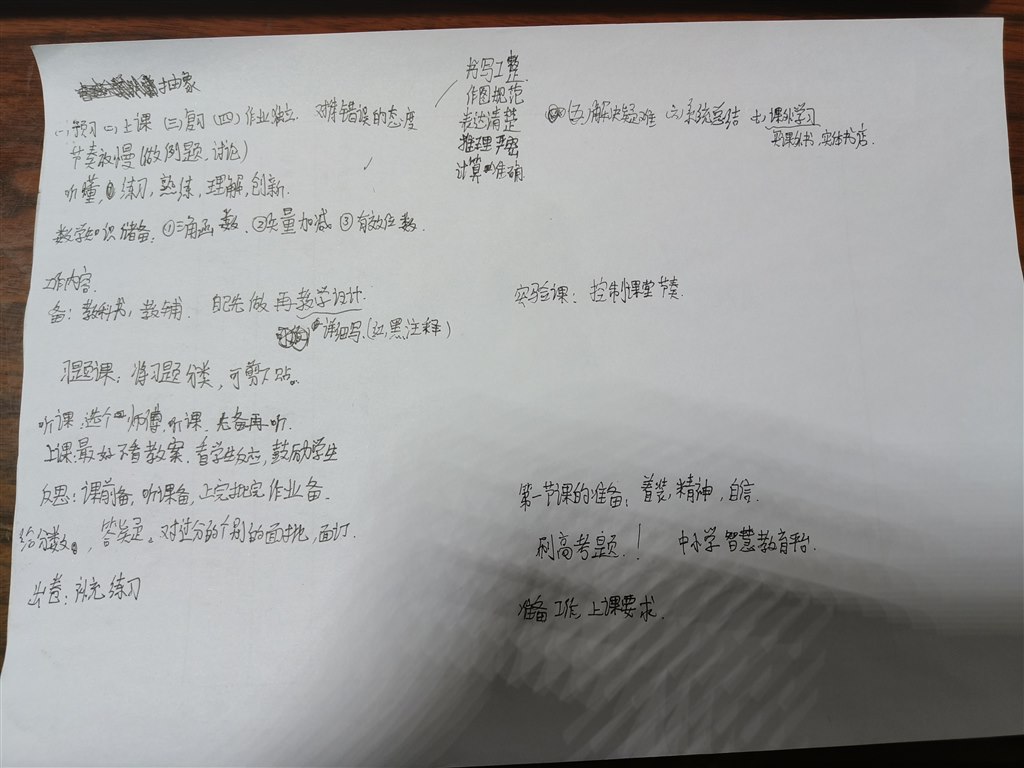 抽象
(一)预习 (二)上课 (三)复习 (四)作业独立 对待错误的态度
书写工整
作图规范
表达清楚
推理严密
计算准确
(五)解决疑难 (六)系统总结 七)课外学习
买课外书,实体书店.
节奏放慢(做例题,讨论)
听懂,练习,熟练,理解,创新.
数学知识储备. ①三角函数. ②矢量加减 ③有效位数.
工作内容.
备:教科书,教辅. 自己先做 再教学设计.
详细写.(红,黑注释)
实验课:控制课堂节奏.
习题课:将习题分类,可剪下贴.
听课.选个师傅,听课.先备再听.
上课:最好不看教案.看学生反应,鼓励学生
反思:课前备,听课备,上完批完作业备.
给分数, 对过分的个别的面批,面订.
出卷:补充练习
第一节课的准备:着装,精神,自信.
刷高考题.! 中小学智慧教育平台.
准备工作,上课要求.